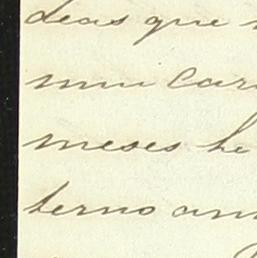 deas que
mui Car
meses he
terno am